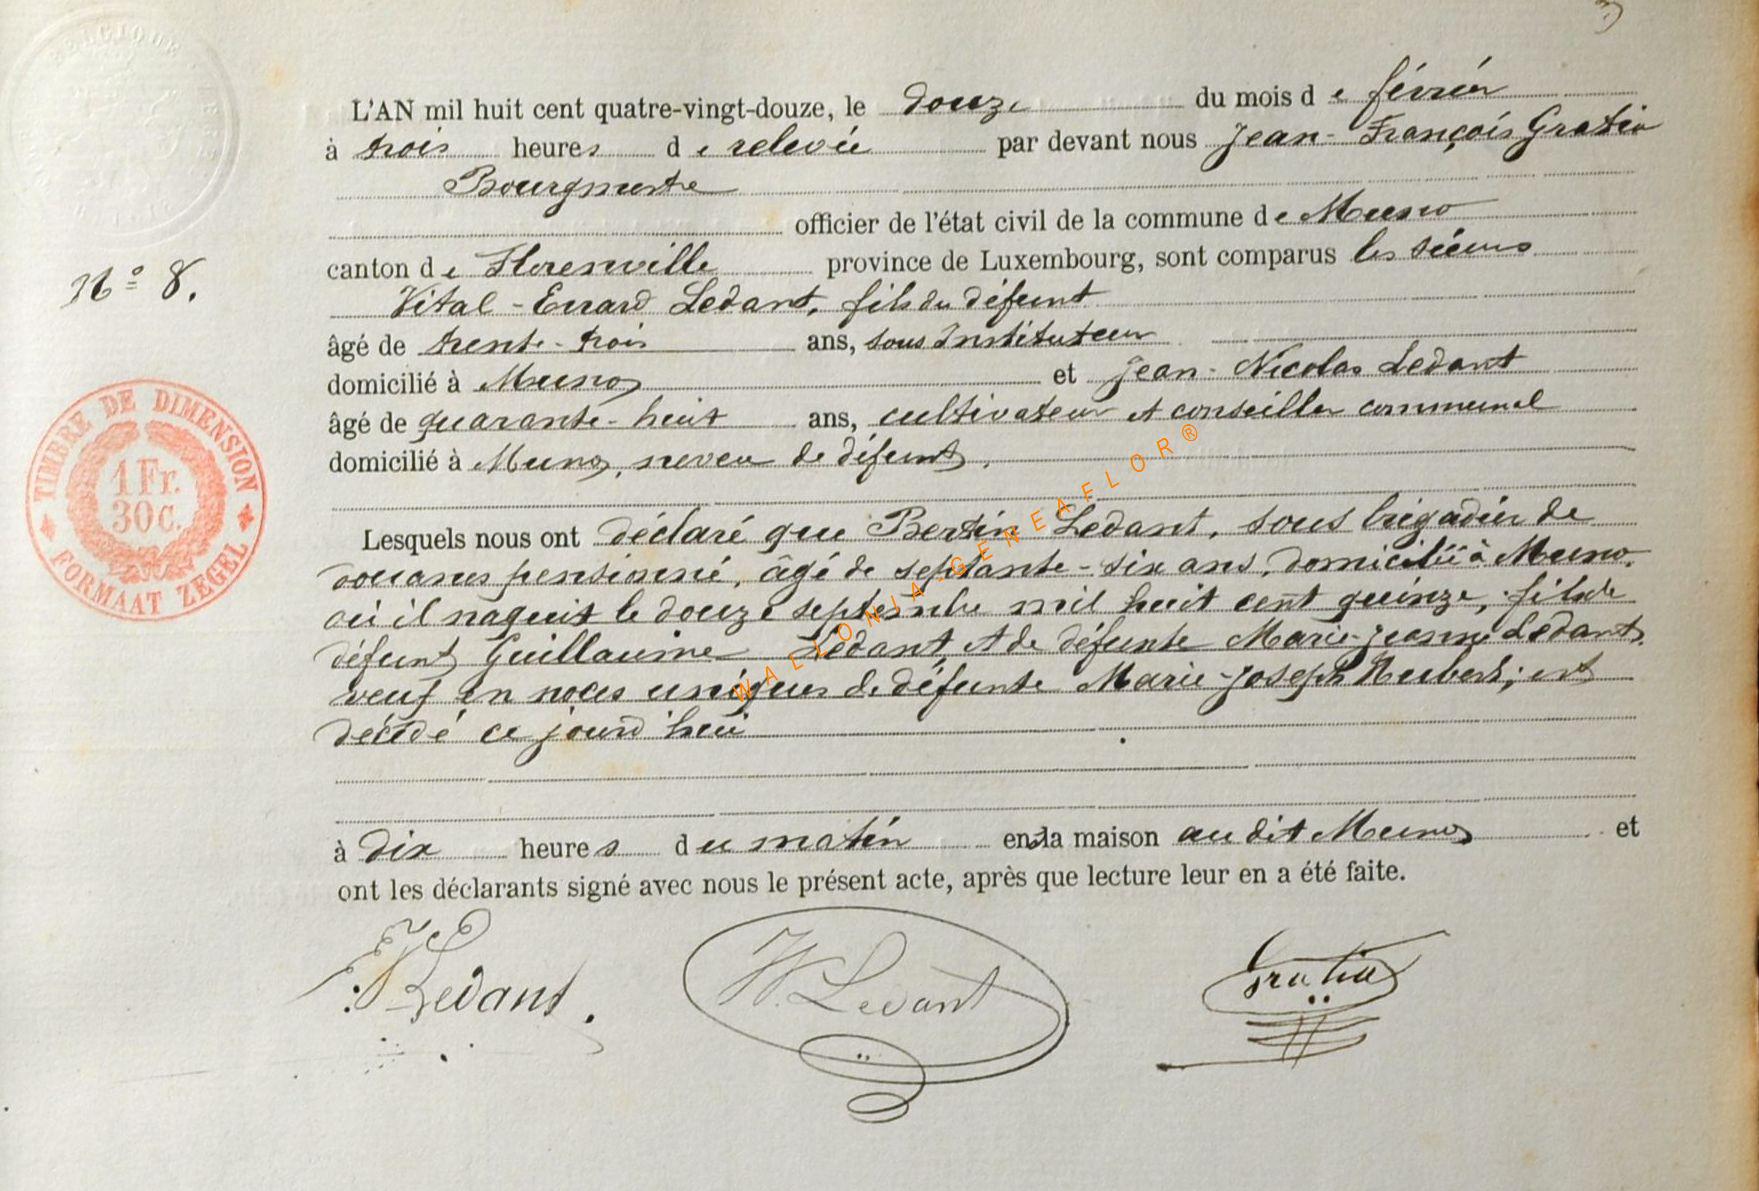 3
BELGIQUE
L'AN mil huit cent quatre-vingt-douze, le douze du mois de février
à trois heures de relevée par devant nous Jean-François Gratia
Bourgmestre
officier de l'état civil de la commune de Muno
canton de Florenville province de Luxembourg, sont comparus les sieurs
N° 8.
Vital-Errard Ledant, fils du défunt
âgé de trente-trois ans, sous Instituteur
domicilié à Muno, et Jean-Nicolas Ledant
âgé de quarante-huit ans, cultivateur et conseiller communal
domicilié à Muno, neveu de défunt,
Lesquels nous ont déclaré que Bertin Ledant, sous brigadier de
douanes pensionné, âgé de septante-six ans, domicilié à Muno,
où il naquit le douze septembre mil huit cent quinze, fils de
défunt Guillaume Ledant, et de défunte Marie-Jeanne Ledant,
veuf en noces uniques de défunte Marie-Joseph Hubert; est
décédé ce jourd'hui
à dix heures du matin en la maison au dit Muno, et
ont les déclarants signé avec nous le présent acte, après que lecture leur en a été faite.
TIMBRE DE DIMENSION
1 Fr.
30 C.
FORMAAT ZEGEL
WALLONIA-GENEAFLOR®
Ledant
N. Ledant
Gratia